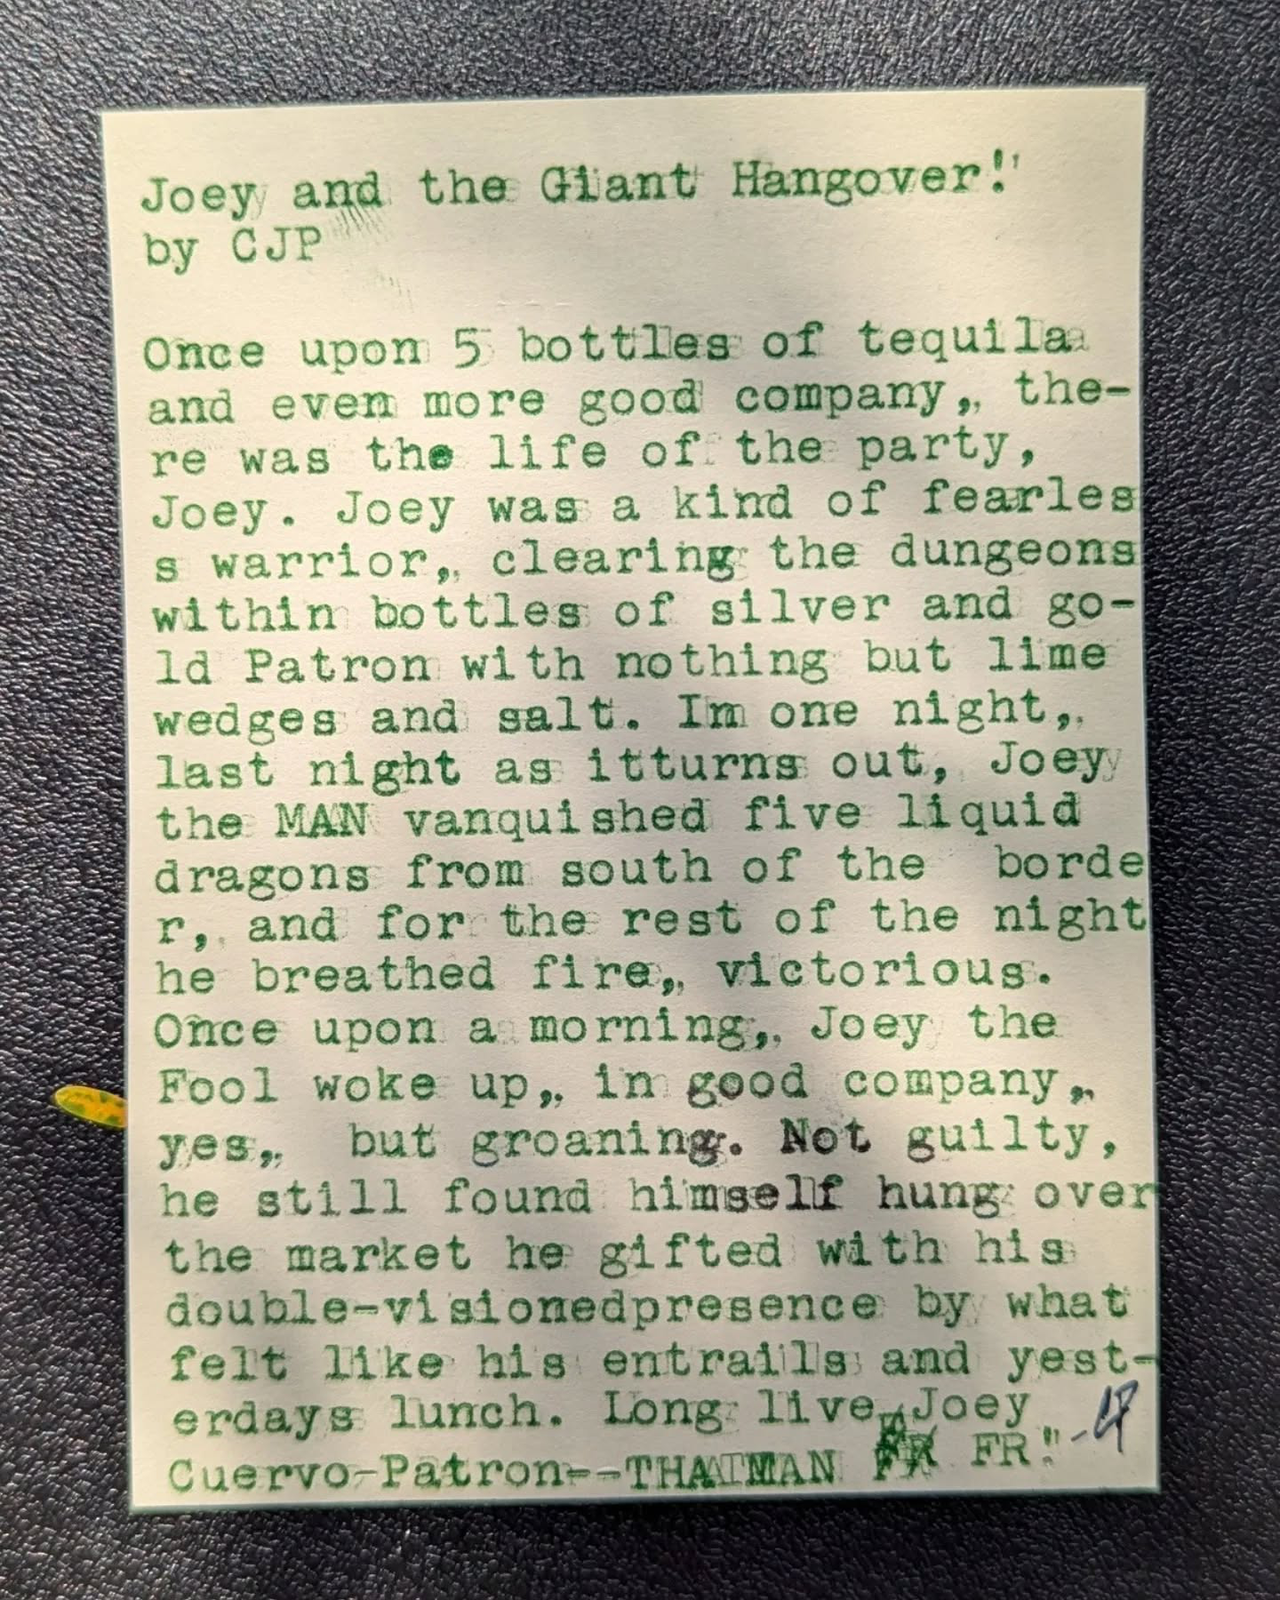 Joey and the Giant Hangover!
by CJP
Once upon 5 bottles of tequila
and even more good company, the-
re was the life of the party,
Joey. Joey was a kind of fearles
s warrior, clearing the dungeons
within bottles of silver and go-
ld Patron with nothing but lime
wedges and salt. Im one night,
last night as itturns out, Joey
the MAN vanquished five liquid
dragons from south of the  borde
r, and for the rest of the night
he breathed fire, victorious.
Once upon a morning, Joey the
Fool woke up, in good company,
yes,  but groaning. Not guilty,
he still found himself hung over
the market he gifted with his
double-visionedpresence by what
felt like his entrails and yest-
erdays lunch. Long live Joey
Cuervo-Patron--THATMAN FR!